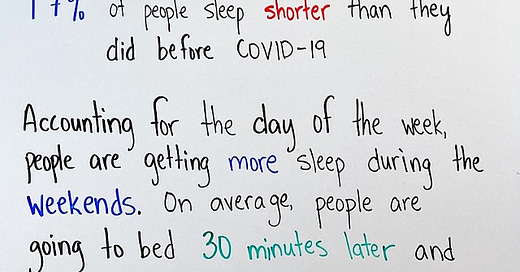 % of people sleep shorter than they
did before COVID-19
Accounting for the day of the week,
people are getting more sleep during the
weekends. On average, people are
going to bed 30 minutes later and